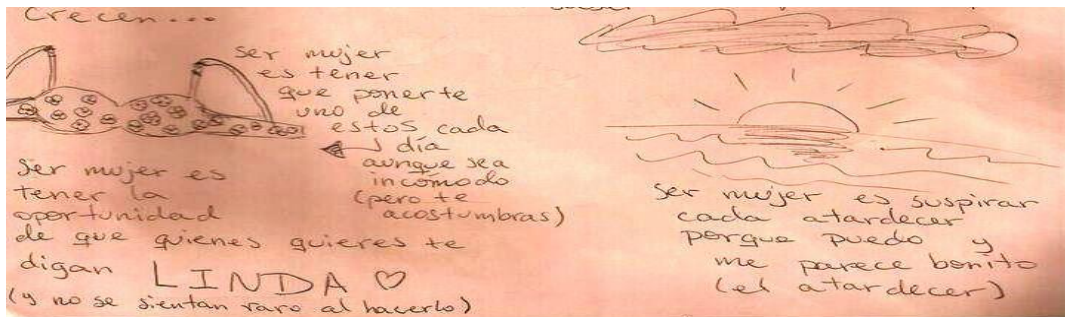 Crecen...
ser mujer
es tener
que ponerte
uno de
estos cada
día
aunque sea
incómodo
(pero te
acostumbras)
Ser mujer es
tener la
oportunidad
de que quienes quieres te
digan LINDA ♡
(y no se sientan raro al hacerlo)
ser mujer es suspirar
cada atardecer
porque puedo y
me parece bonito
(el atardecer)